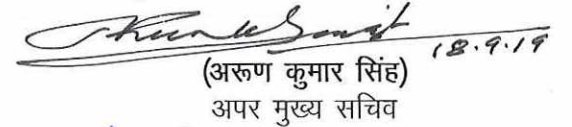 18.9.19
(अरूण कुमार सिंह)
अपर मुख्य सचिव